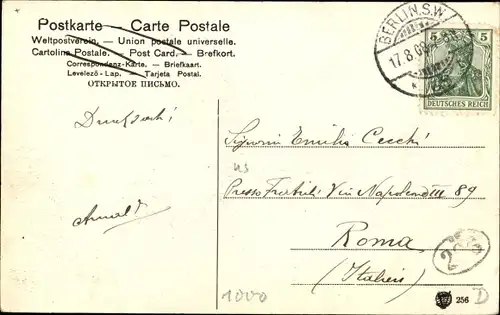 Postkarte — Carte Postale
Weltpostverein. — Union postale universelle.
Cartolina Postale. — Post Card. — Brefkort.
Correspondenz-Karte. — Briefkaart.
Levelező-Lap. — Tarjeta Postal.
ОТКРЫТОЕ ПИСЬМО.
BERLIN.S.W.
17.8.
5 5
DEUTSCHES REICH
Drucksache!
Signorri Emilio Cecchi
Presso Via Napoleone III 89
Roma
(Italien)
1000
256
D